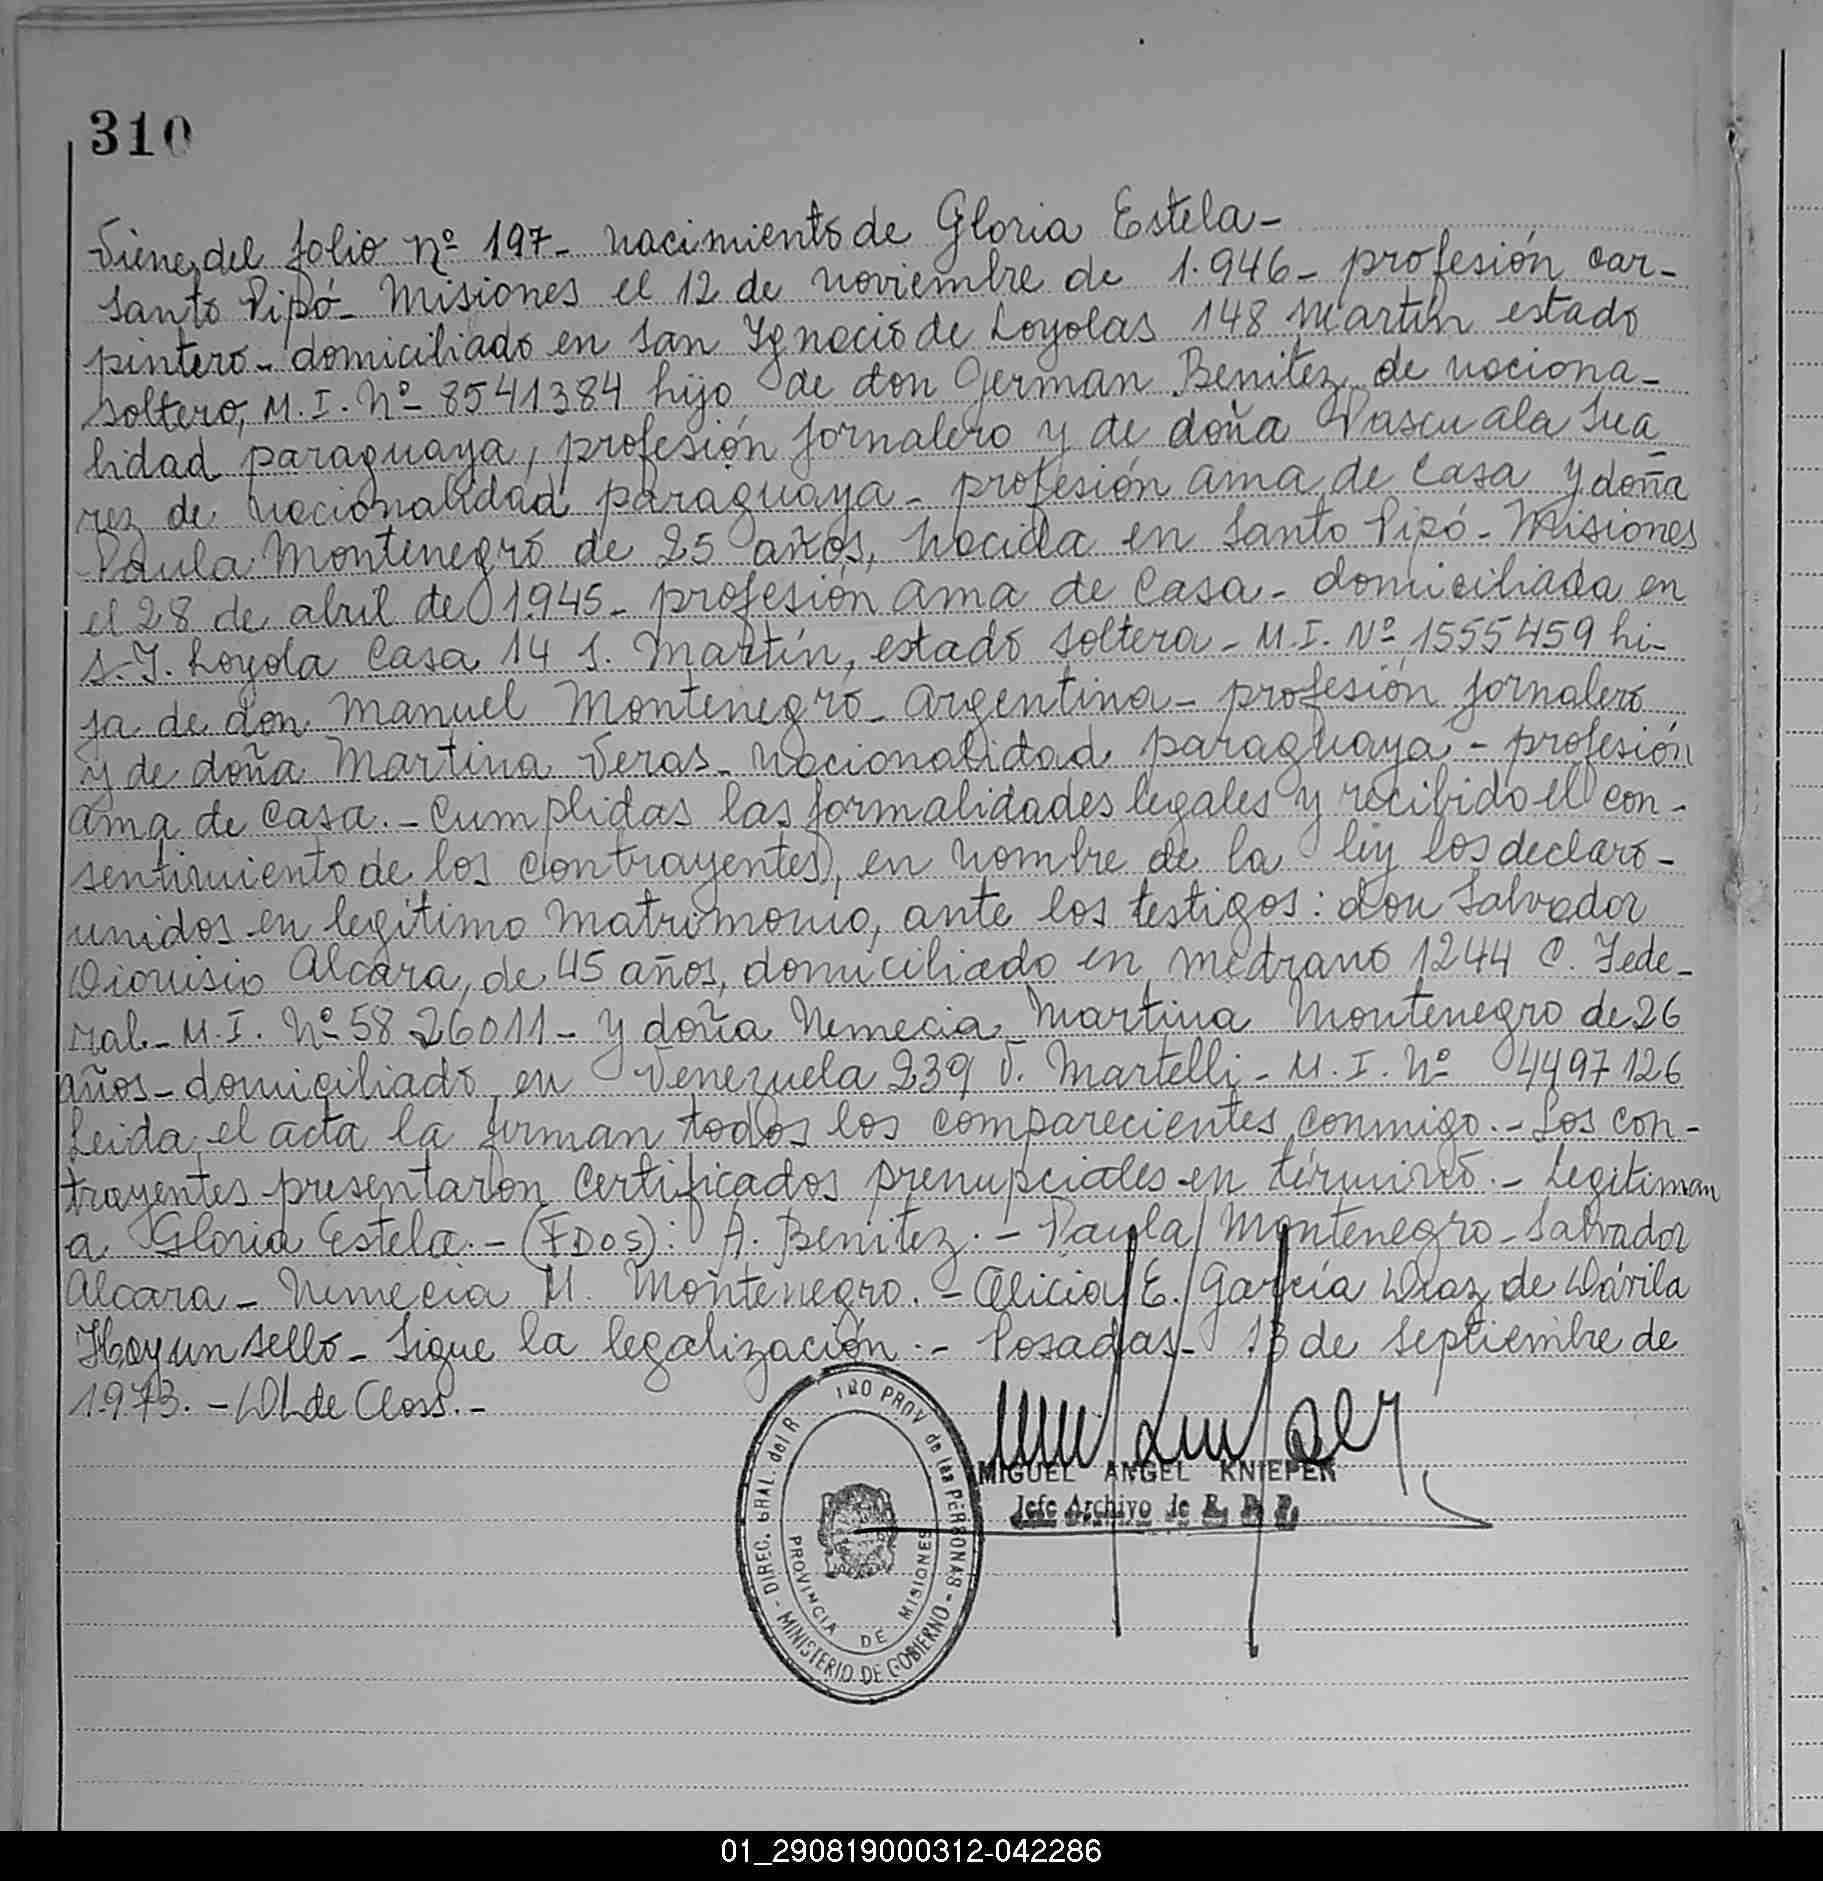 310
Viene del folio Nº 197 - nacimiento de Gloria Estela -
Santo Pipó - Misiones el 12 de noviembre de 1.946 - profesión car-
pintero - domiciliado en San Ignacio de Loyolas 148 Martín estado
soltero, M. I. Nº 8541384 hijo de don German Benitez de naciona-
lidad paraguaya, profesión jornalero y de doña Pascuala Sua
rez de nacionalidad paraguaya - profesión ama de casa y doña
Paula Montenegro de 25 años, nacida en Santo Pipó - Misiones
el 28 de abril de 1945 - profesión ama de Casa - domiciliada en
S. I. Loyola Casa 14 S. Martín, estado soltera - M. I. Nº 1555459 hi-
ja de don Manuel Montenegro - argentina - profesión jornalero
y de doña Martina Veras - nacionalidad paraguaya - profesión
ama de casa. - Cumplidas las formalidades legales y recibido el con-
sentimiento de los contrayentes, en nombre de la ley los declaro -
unidos en legítimo matrimonio, ante los testigos: don Salvador
Dionisio Alcara, de 45 años, domiciliado en Medrano 1244 C. Fede-
ral - M. I. Nº 58 26011 - y doña Nemecia Martina Montenegro de 26
años - domiciliado en Venezuela 239 V. Martelli - M. I. Nº 4497126
Leida el acta la firman todos los comparecientes conmigo. - Los con-
trayentes presentaron certificados prenupciales en término. - Legitiman
a Gloria Estela. - (FDOS): A. Benitez. - Paula Montenegro - Salvador
Alcara - Nemecia M. Montenegro. - Alicia E. García Diaz de Dávila
Hay un sello - Sigue la legalización. - Posadas - 13 de Septiembre de
1.973. - DL de Closs. -
MIGUEL ANGEL KNIEPER
Jefe Archivo de R. P. P.
DIREC. GRAL. del R TRO PROV de las PERSONAS - MINISTERIO DE GOBIERNO -
PROVINCIA DE MISIONES
01_290819000312-042286